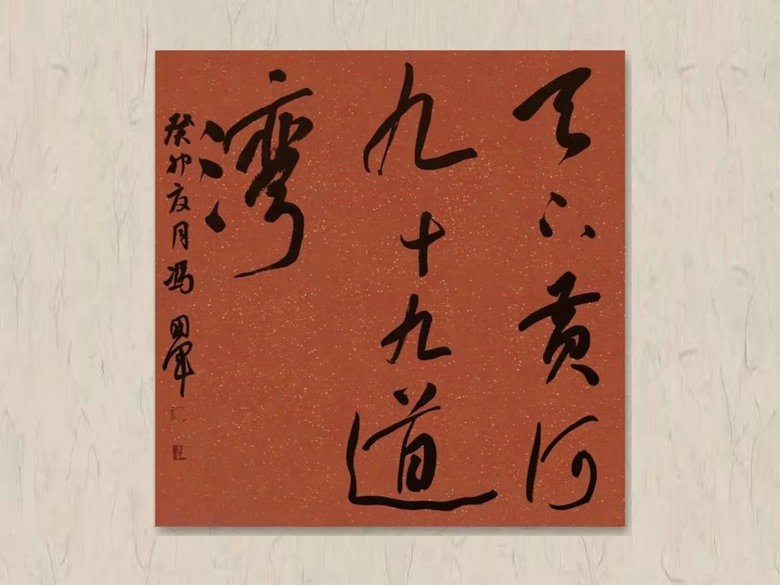 天下黄河
九十九道
湾
癸卯夏月冯国军